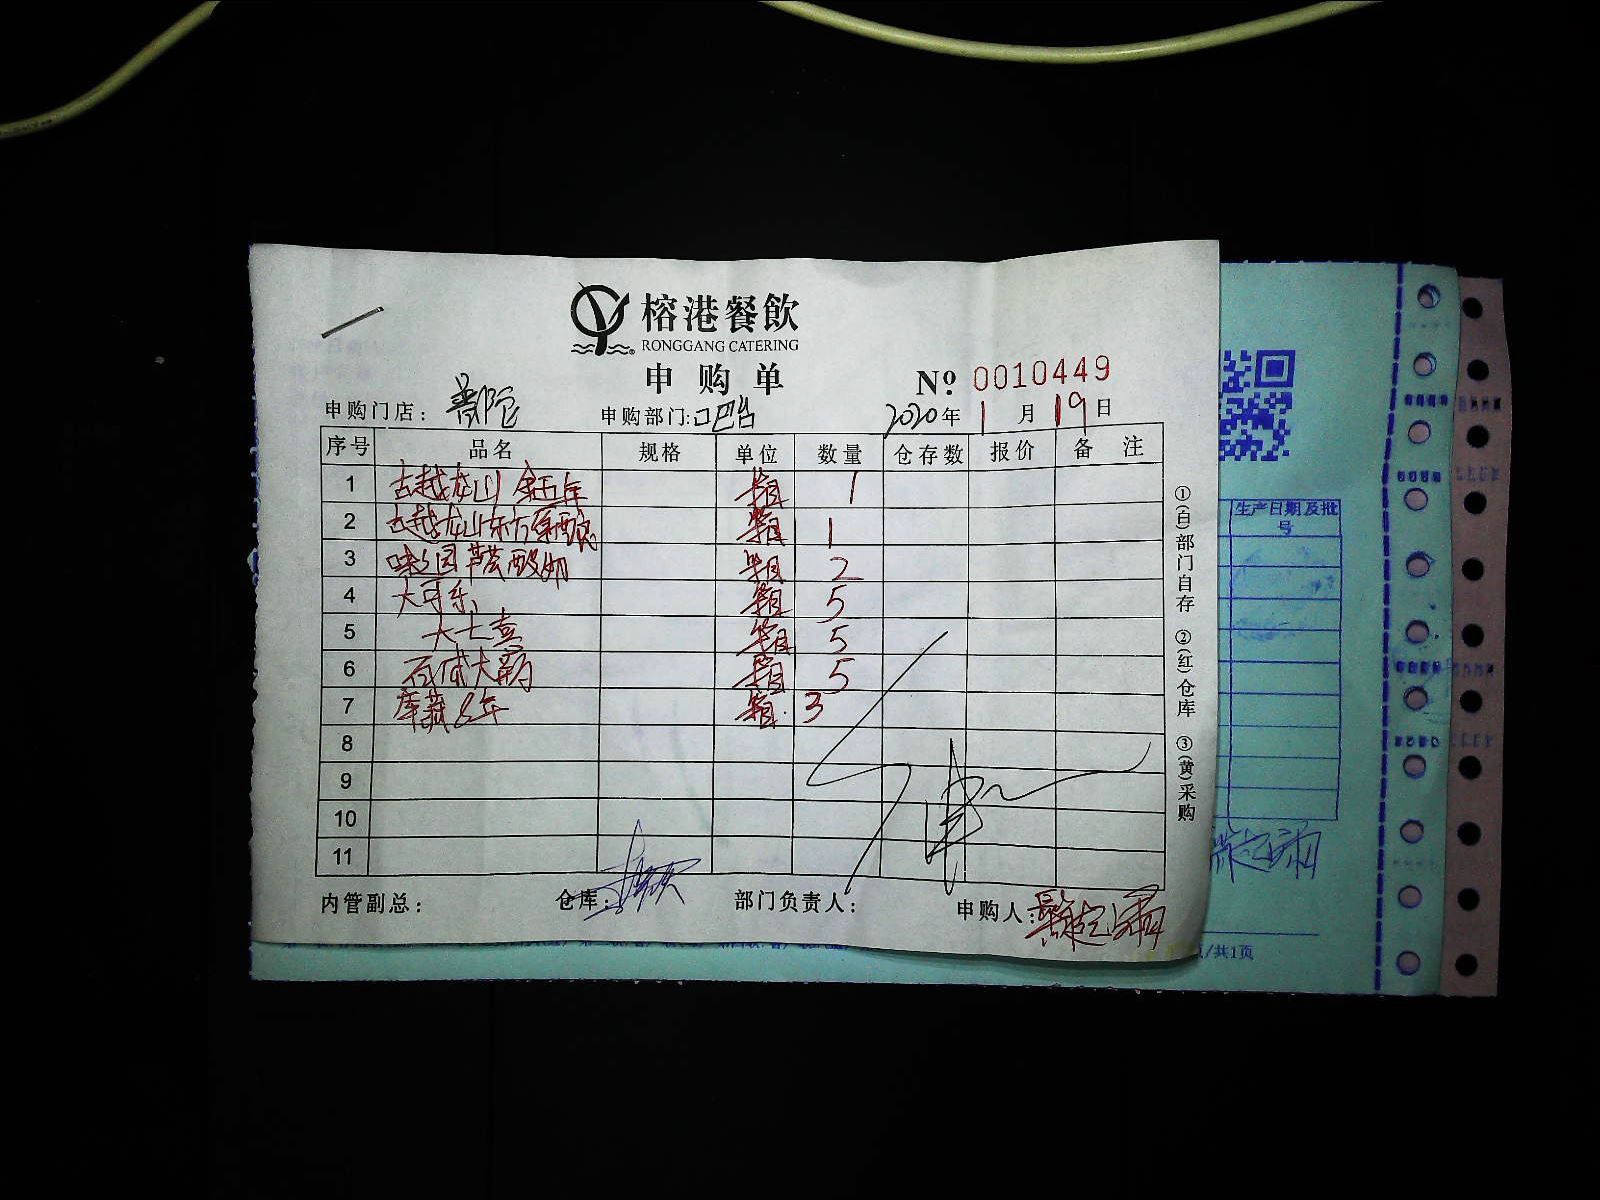 榕港餐飲
RONGGANG CATERING
申购单
№ 0010449
申购门店：普陀 申购部门：吧台 2020年1月19日
序号 品名 规格 单位 数量 仓存数 报价 备注
1 古越龙山 金五年 箱 1
2 古越龙山东方原酿 箱 1
3 味全园芦荟酸奶 箱 2
4 大可乐 箱 5
5 大七喜 箱 5
6 百威大 箱 5
7 库藏8年 箱 3
8
9
10
11
内管副总： 仓库： 部门负责人： 申购人：
①(白)部门自存 ②(红)仓库 ③(黄)采购
生产日期及批号
/共1页